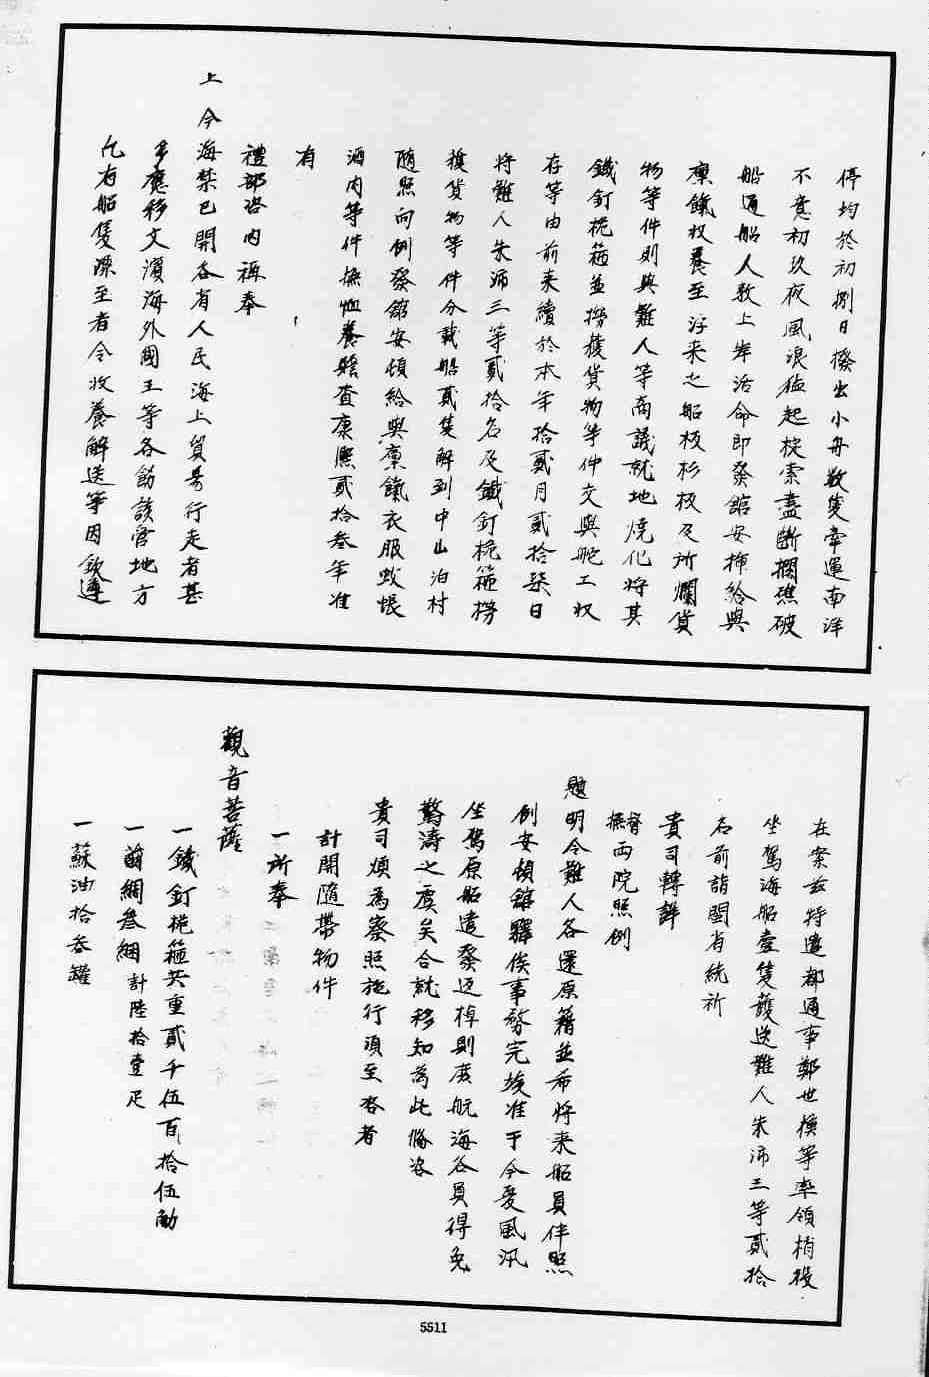 停均於初捌日撥出小舟数隻牽運南洋
不意初玖夜風浪猛起椗索盡斷擱礁破
船通船人数上岸活命即發館安揷給與
廪餼收養至浮来之船板杉板及所爛貨
物等件則與難人等商議就地燒化將其
鐵釘桅箍並撈獲貨物等件交與舵工収
存等由前来續於本年拾貳月貳拾柒日
将難人朱沛三等貳拾名及鐵釘桅箍撈
獲貨物等件分載船貳隻解到中山泊村
随照向例發舘安頓給與廪餼衣服蚊帳
酒肉等件撫恤養贍查康熈貳拾叁年准
有
禮部咨内稱奉
上今海禁已開各省人民海上貿易行走者甚
多應移文濱海外國王等各飭該管地方
凢有船隻漂至者令收養解送等因欽遵
在案兹特遣都通事鄭世 等率領梢役
坐駕海船壹隻護送難人朱沛三等貳拾
名前詣閩省統祈
貴司轉詳
督撫両院照例
題明令難人各還原籍並希将来船員伴照
例安頓館驛俟事務完竣准于今夏風汛
坐駕原船遣發返棹則庶航海各員得免
驚濤之虞矣合就移知為此備咨
貴司煩為察照施行須至咨者
計開隨帶物件
一所奉
觀音菩薩
一鐵釘桅箍共重貳千伍百拾伍觔
一繭綢叁綑計陸拾壹疋
一蘇油拾叁罐
5511